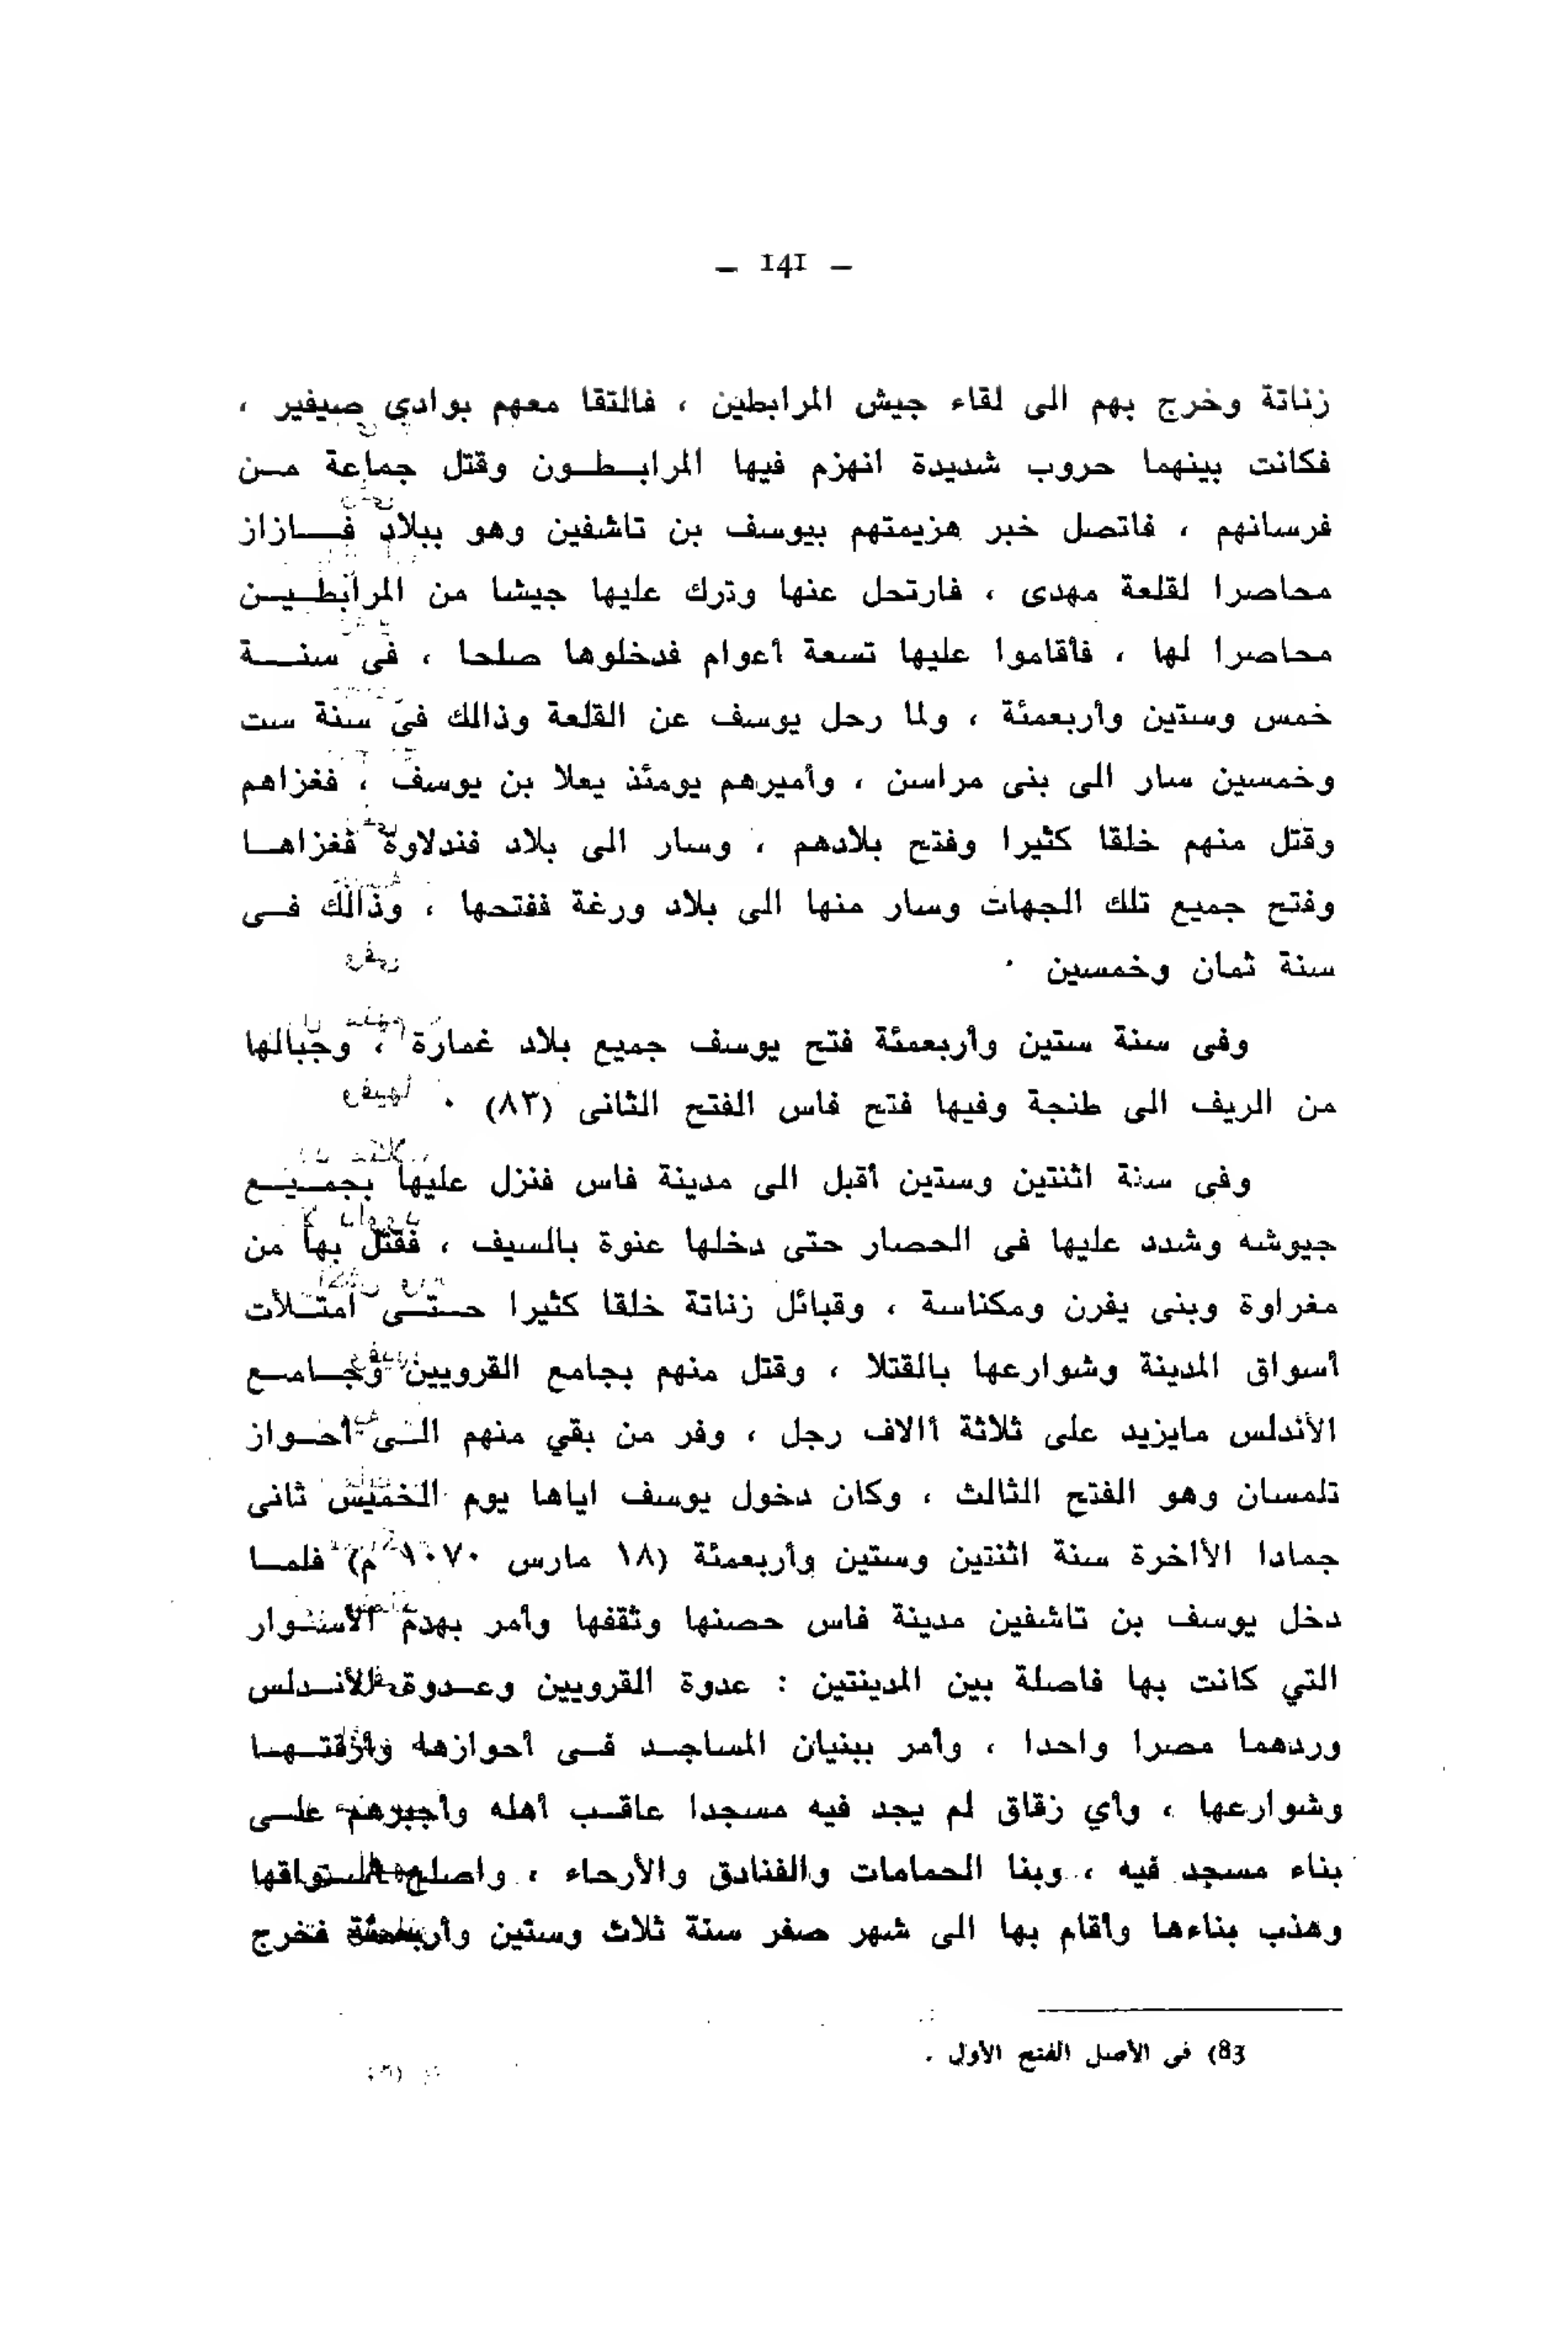 – 141 –
زناتة وخرج بهم الى لقاء جيش المرابطين ، فالتقا معهم بوادي صيفير ،
فكانت بينهما حروب شديدة انهزم فيها المرابطون وقتل جماعة من
فرسانهم ، فاتصل خبر هزيمتهم بيوسف بن تاشفين وهو ببلاد فازاز
محاصرا لقلعة مهدى ، فارتحل عنها وترك عليها جيشا من المرابطين
محاصرا لها ، فأقاموا عليها تسعة أعوام فدخلوها صلحا ، فى سنة
خمس وستين وأربعمئة ، ولما رحل يوسف عن القلعة وذالك فى سنة ست
وخمسين سار الى بنى مراسن ، وأميرهم يومئذ يعلا بن يوسف ، فغزاهم
وقتل منهم خلقا كثيرا وفتح بلادهم ، وسار الى بلاد فندلاوة فغزاها
وفتح جميع تلك الجهات وسار منها الى بلاد ورغة ففتحها ، وذالك فى
سنة ثمان وخمسين .
وفى سنة ستين وأربعمئة فتح يوسف جميع بلاد غمارة ، وجبالها
من الريف الى طنجة وفيها فتح فاس الفتح الثانى (٨٣) .
وفى سنة اثنتين وستين أقبل الى مدينة فاس فنزل عليها بجميع
جيوشه وشدد عليها فى الحصار حتى دخلها عنوة بالسيف ، فقتل بها من
مغراوة وبنى يفرن ومكناسة ، وقبائل زناتة خلقا كثيرا حتى امتلأت
أسواق المدينة وشوارعها بالقتلا ، وقتل منهم بجامع القرويين وجامع
الأندلس مايزيد على ثلاثة أالاف رجل ، وفر من بقي منهم الى أحواز
تلمسان وهو الفتح الثالث ، وكان دخول يوسف اياها يوم الخميس ثانى
جمادا الأاخرة سنة اثنتين وستين وأربعمئة (١٨ مارس ١٠٧٠ م) فلما
دخل يوسف بن تاشفين مدينة فاس حصنها وثقفها وأمر بهدم الأسوار
التي كانت بها فاصلة بين المدينتين : عدوة القرويين وعدوة الأندلس
وردهما مصرا واحدا ، وأمر ببنيان المساجد فى أحوازها وأزقتها
وشوارعها ، وأي زقاق لم يجد فيه مسجدا عاقب أهله وأجبرهم على
بناء مسجد فيه ، وبنا الحمامات والفنادق والأرحاء ، وأصلح أسواقها
وهذب بناءها وأقام بها الى شهر صفر سنة ثلاث وستين وأربعمئة فخرج
83) فى الأصل الفتح الأول .